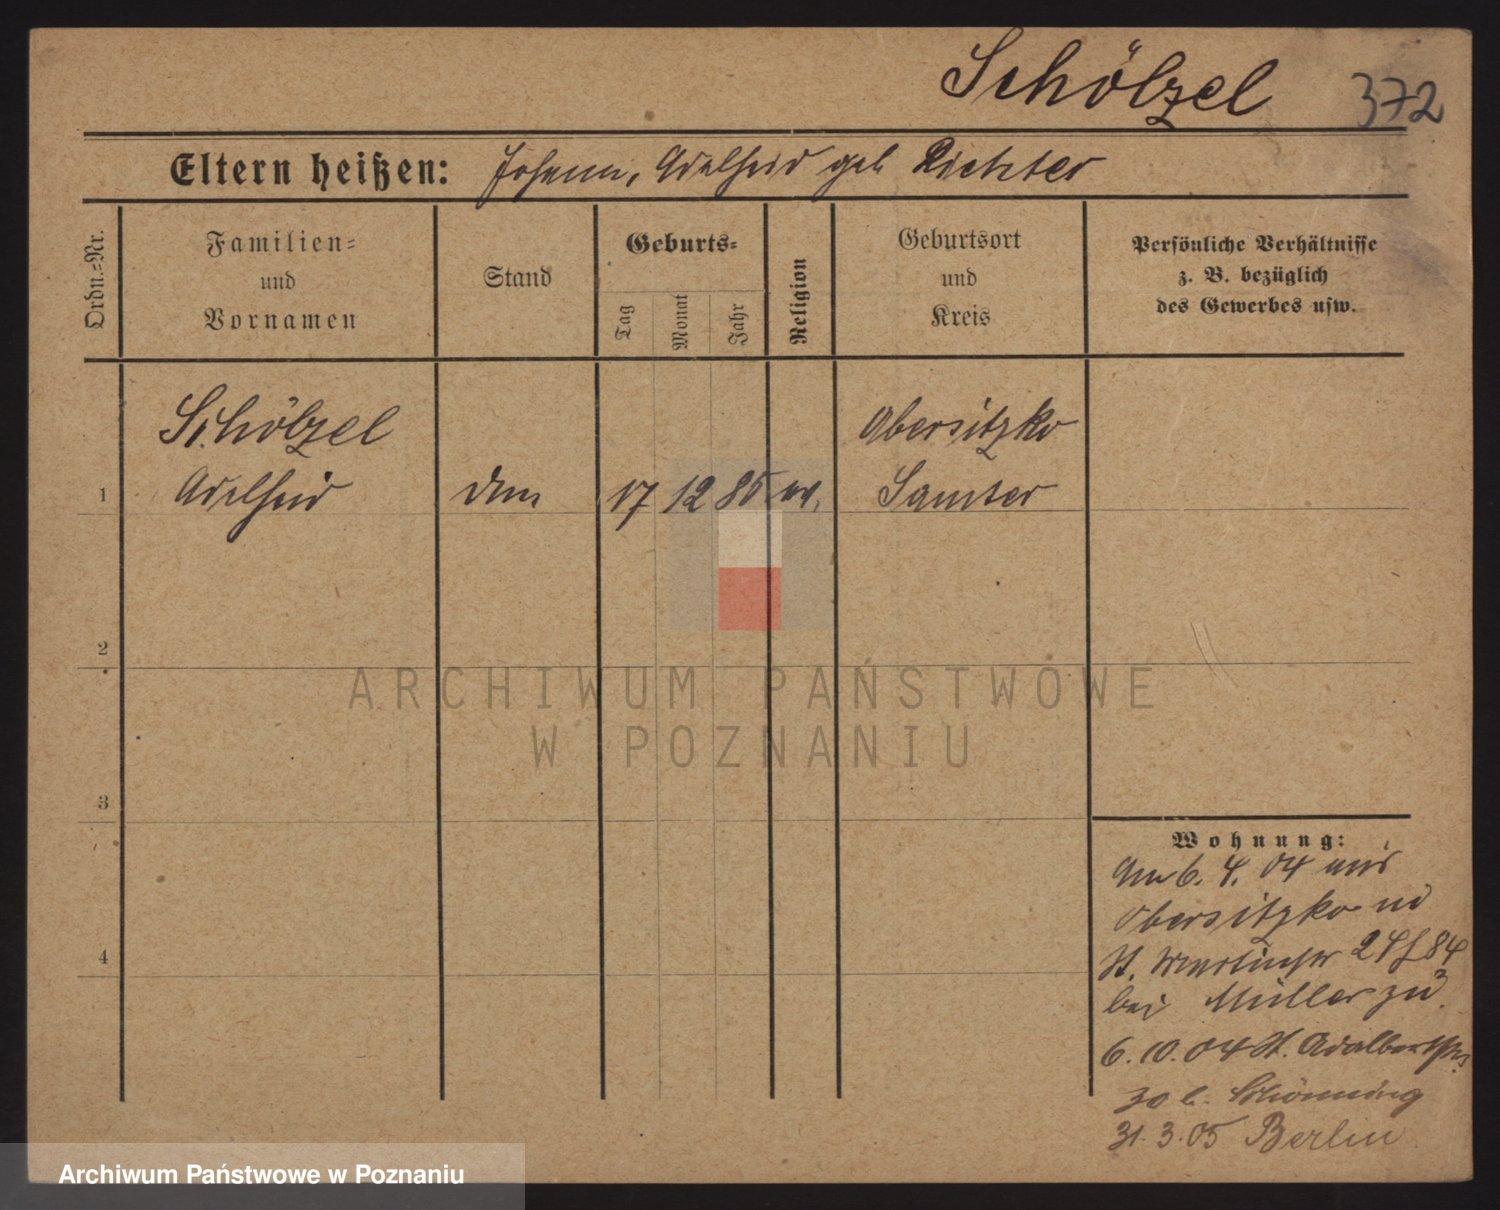 Schölzel 372
Eltern heißen: Johann, Adelheid geb Richter
Ordn.-Nr.
Familien-
und
Vornamen
Stand
Geburts-
Tag
Monat
Jahr
Religion
Geburtsort
und
Kreis
Persönliche Verhältnisse
z. B. bezüglich
des Gewerbes usw.
Schölzel Obersitzko
1 Adelheid 17 12 85 ev. Samter
2
3
4
Wohnung:
Am 6. 4. 04 aus
Obersitzko
St. Martinstr 24
bei Müller zu
6. 10. 04 St. Adalbertstr
30 b.
31. 3. 05 Berlin
ARCHIWUM PAŃSTWOWE
W POZNANIU
Archiwum Państwowe w Poznaniu